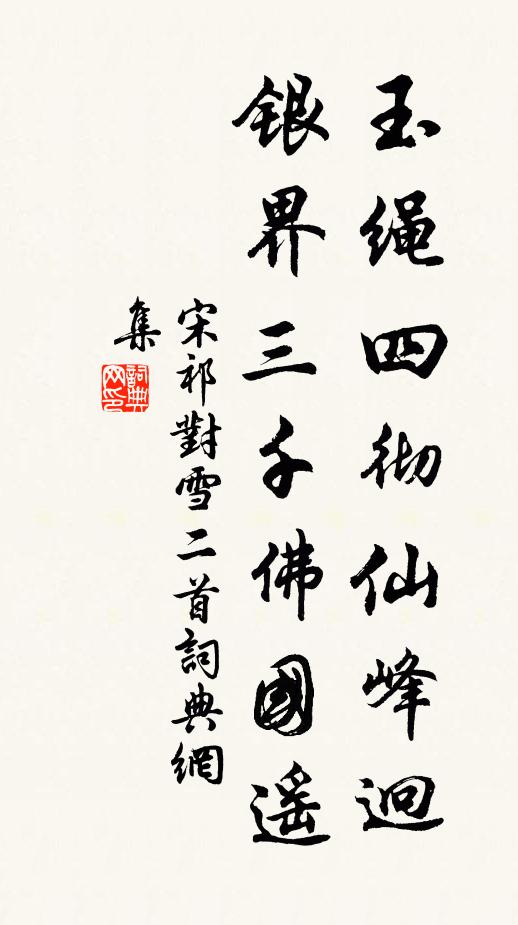 玉绳四彻仙峰迥
銀界三千佛國遥
宋祁對雪二首詞典網
集
詞典
网印